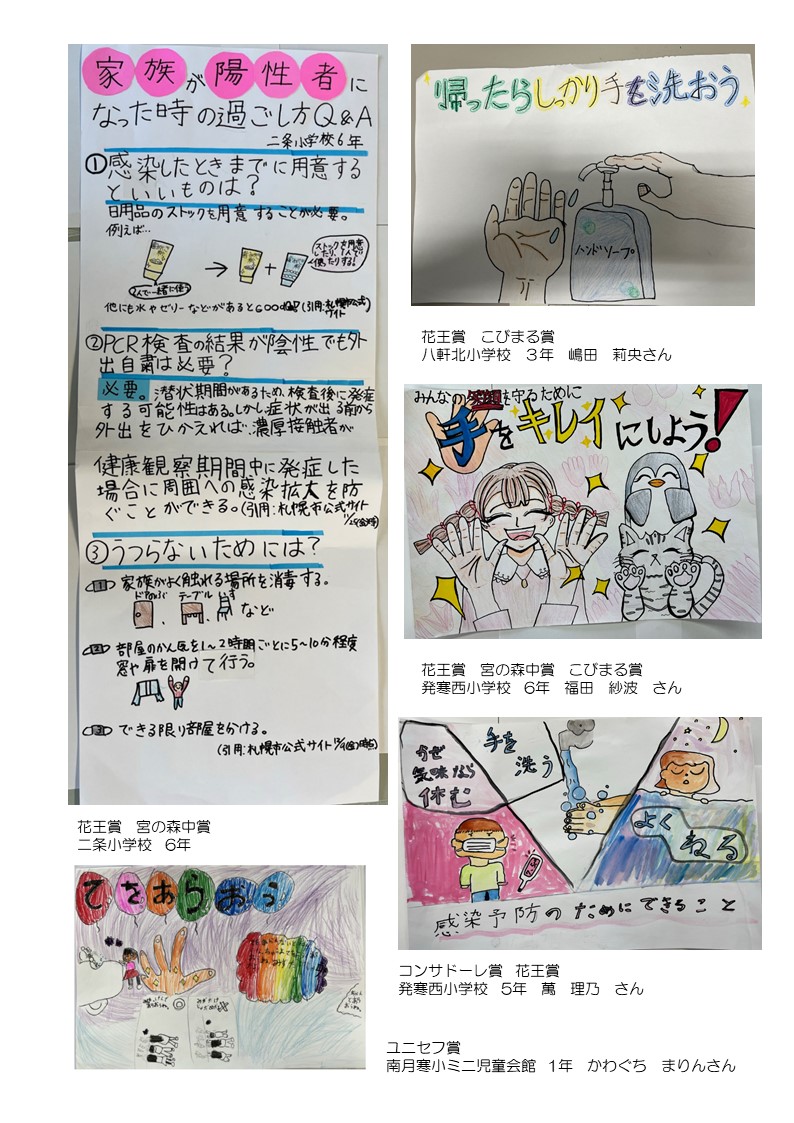 家族が陽性者に
なった時の過ごし方Q&A
二条小学校6年
①感染したときまでに用意する
といいものは?
日用品のストックを用意することが必要。
例えば…
2人で一緒に使う
→
+
ストックを用意
したり、1人で
使ったりする!
他にも水やゼリーなどがあるとGOOD
(引用:札幌市公式
サイト
②PCR検査の結果が陰性でも外
出自粛は必要?
必要。潜状期間があるため、検査後に発症
する可能性はある。しかし、症状が出る前から
外出をひかえれば、濃厚接触者が
健康観察期間中に発症した
場合に周囲への感染拡大を防
ぐことができる。(引用:札幌市公式サイト
③うつらないためには?
家族がよく触れる場所を消毒する。
ドアノブ
テーブル
いす
など
部屋のかん気を1~2時間ごとに5~10分程度
窓や扉を開けて行う。
できる限り部屋を分ける。
(引用:札幌市公式サイト
花王賞 宮の森中賞
二条小学校 6年
てをあらおう
帰ったらしっかり手を洗おう
ハンドソープ
花王賞 こびまる賞
八軒北小学校 3年 嶋田 莉央さん
みんなの笑顔を守るために
手をキレイにしよう!
花王賞 宮の森中賞 こびまる賞
発寒西小学校 6年 福田 紗波 さん
かぜ
気味なら
休む
手を
洗う
よく
ねる
感染予防のためにできること
コンサドーレ賞 花王賞
発寒西小学校 5年 萬 理乃 さん
ユニセフ賞
南月寒小ミニ児童会館 1年 かわぐち まりんさん